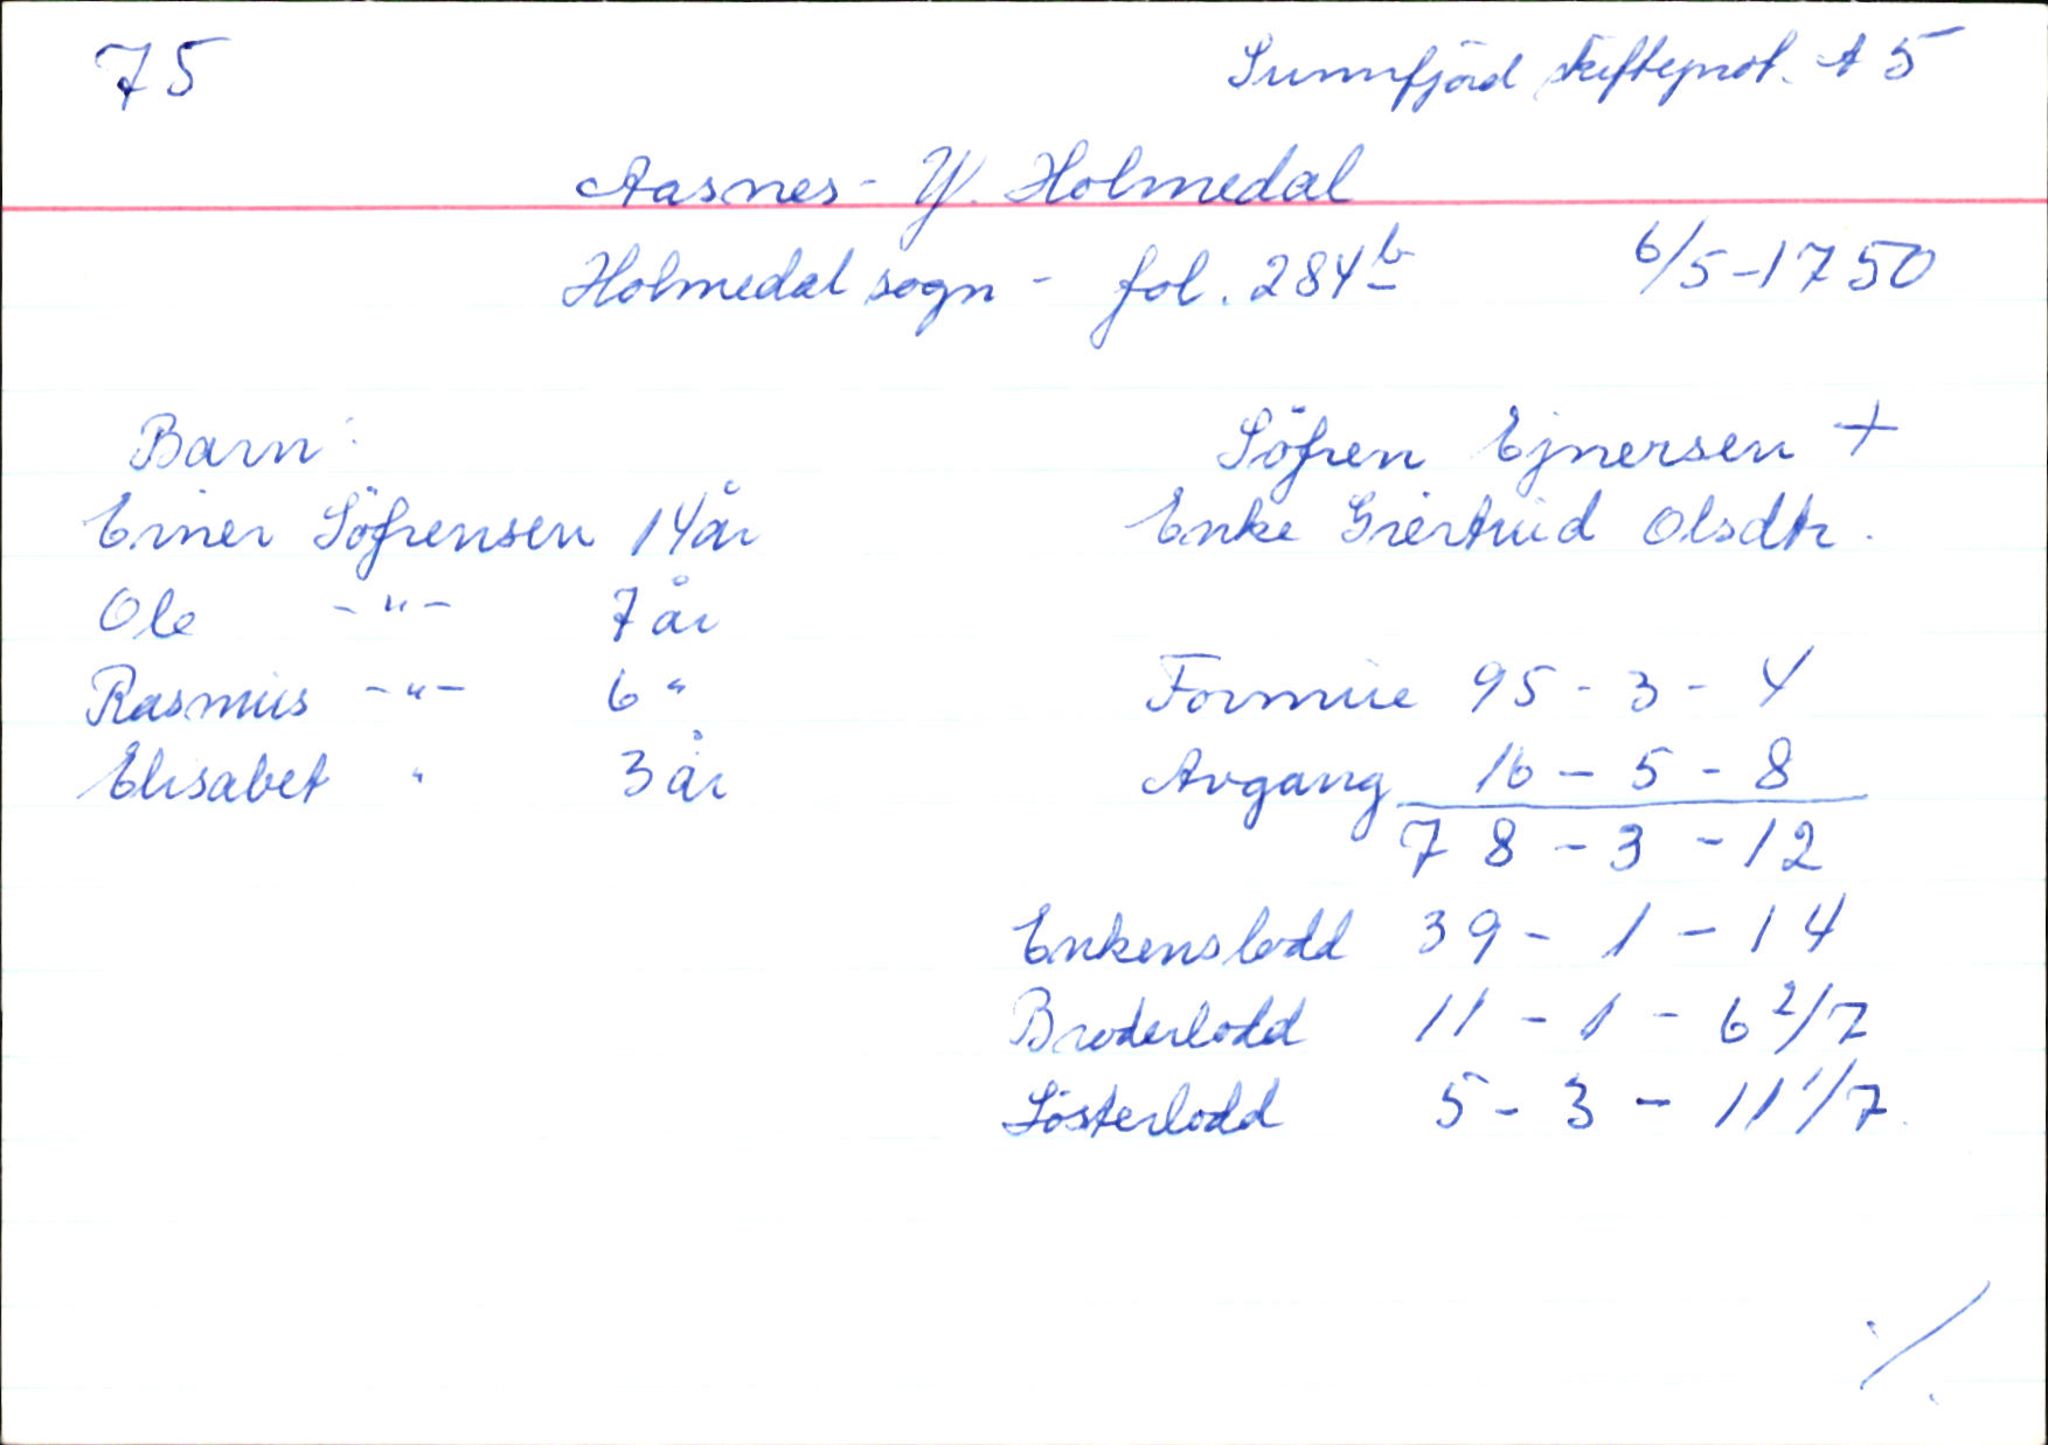 75
Sunnfjörd skifteprot. A 5
Aasnes - Y. Holmedal
Holmedal sogn - fol. 284 b 6/5-1750
Barn:
Einer Söfrensen 14 år
Ole -"- 7 år
Rasmus -"- 6 "
Elisabet " 3 år
Söfren Ejnersen +
Enke Giertrud Olsdtr.
Formue 95 - 3 - 4
Avgang 16 - 5 - 8
78 - 3 - 12
Enkens lodd 39 - 1 - 14
Broderlodd 11 - 1 - 6 2/7
Sösterlodd 5 - 3 - 11 1/7
./.